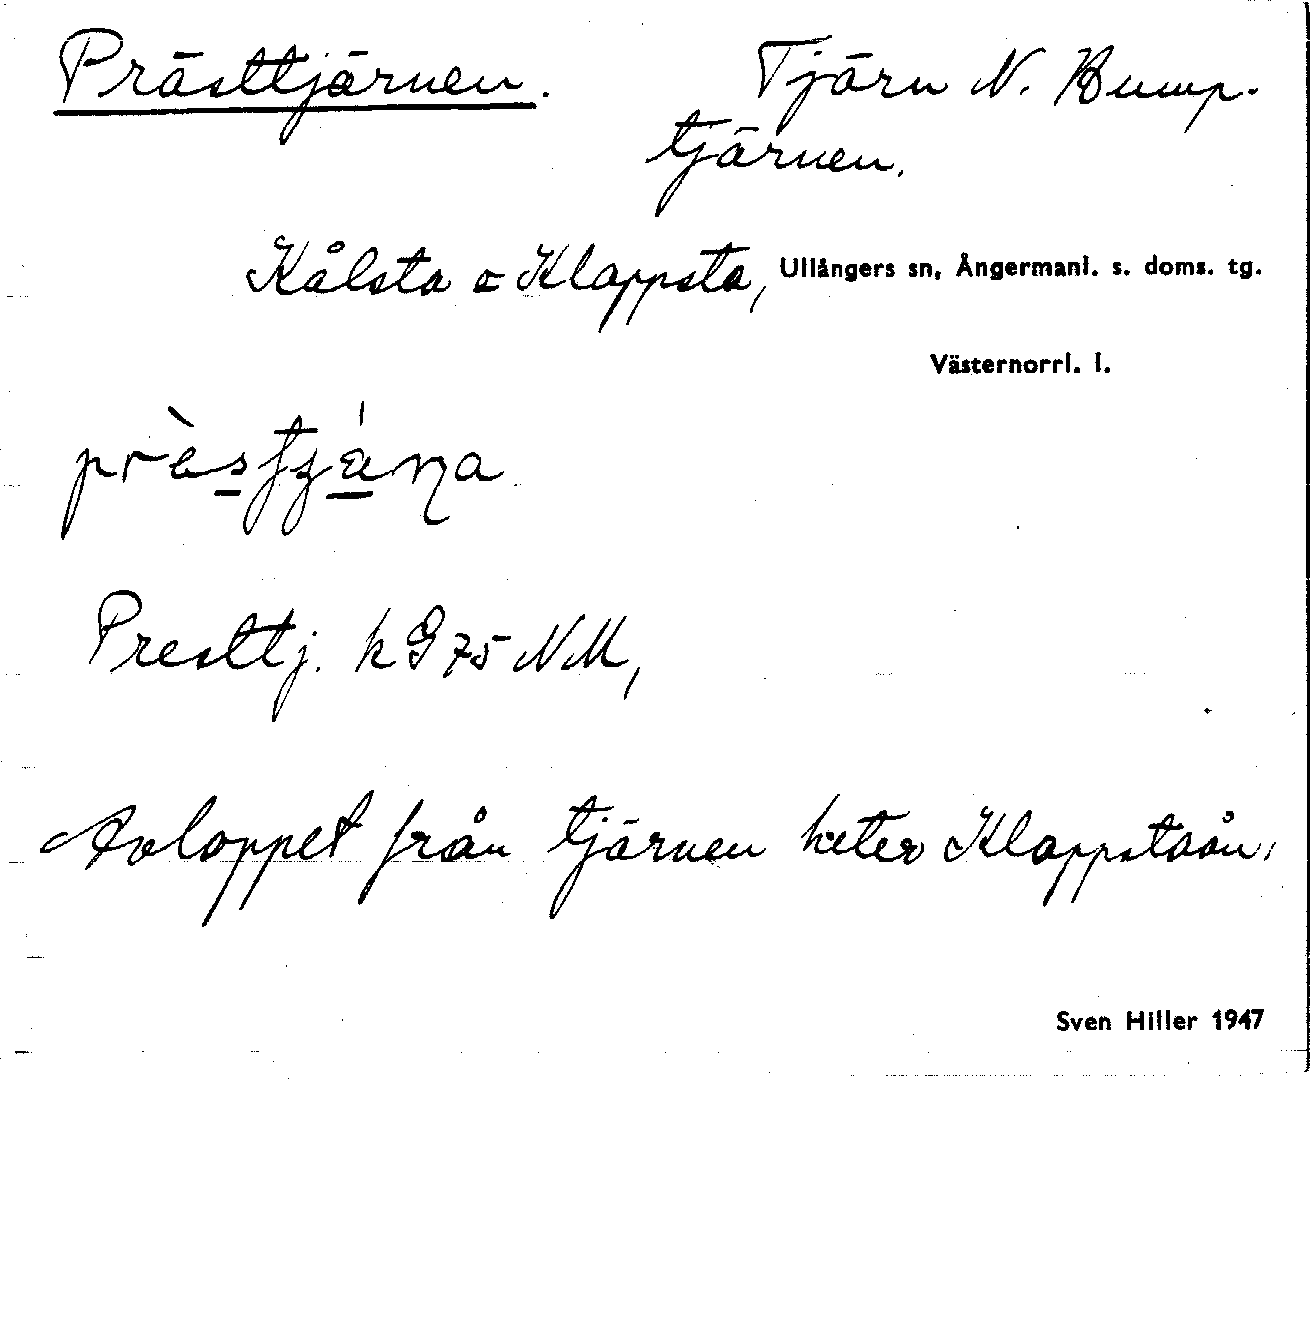 Prästtjärnen. Tjärn N. Kump-
tjärnen.
Kålsta o Klappsta, Ullångers sn, Ångermanl. s. doms. tg.
Västernorrl. l.
Presttj. k G 75 NM,
Avloppet från tjärnen heter Klappstaån,
Sven Hiller 1947